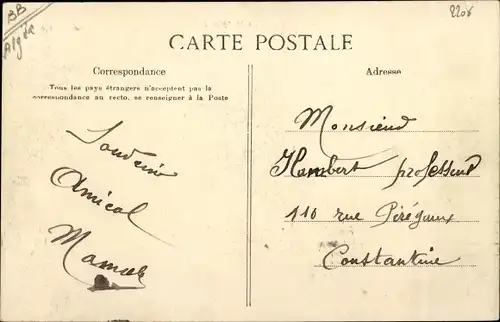 BB
Algée
2208
CARTE POSTALE
Correspondance
Tous les pays étrangers n'acceptent pas la
correspondance au recto, se renseigner à la Poste
Souvenir
Amical
Marcel
Adresse
Monsieur
Humbert professeur
110 rue Pérégaux
Constantine